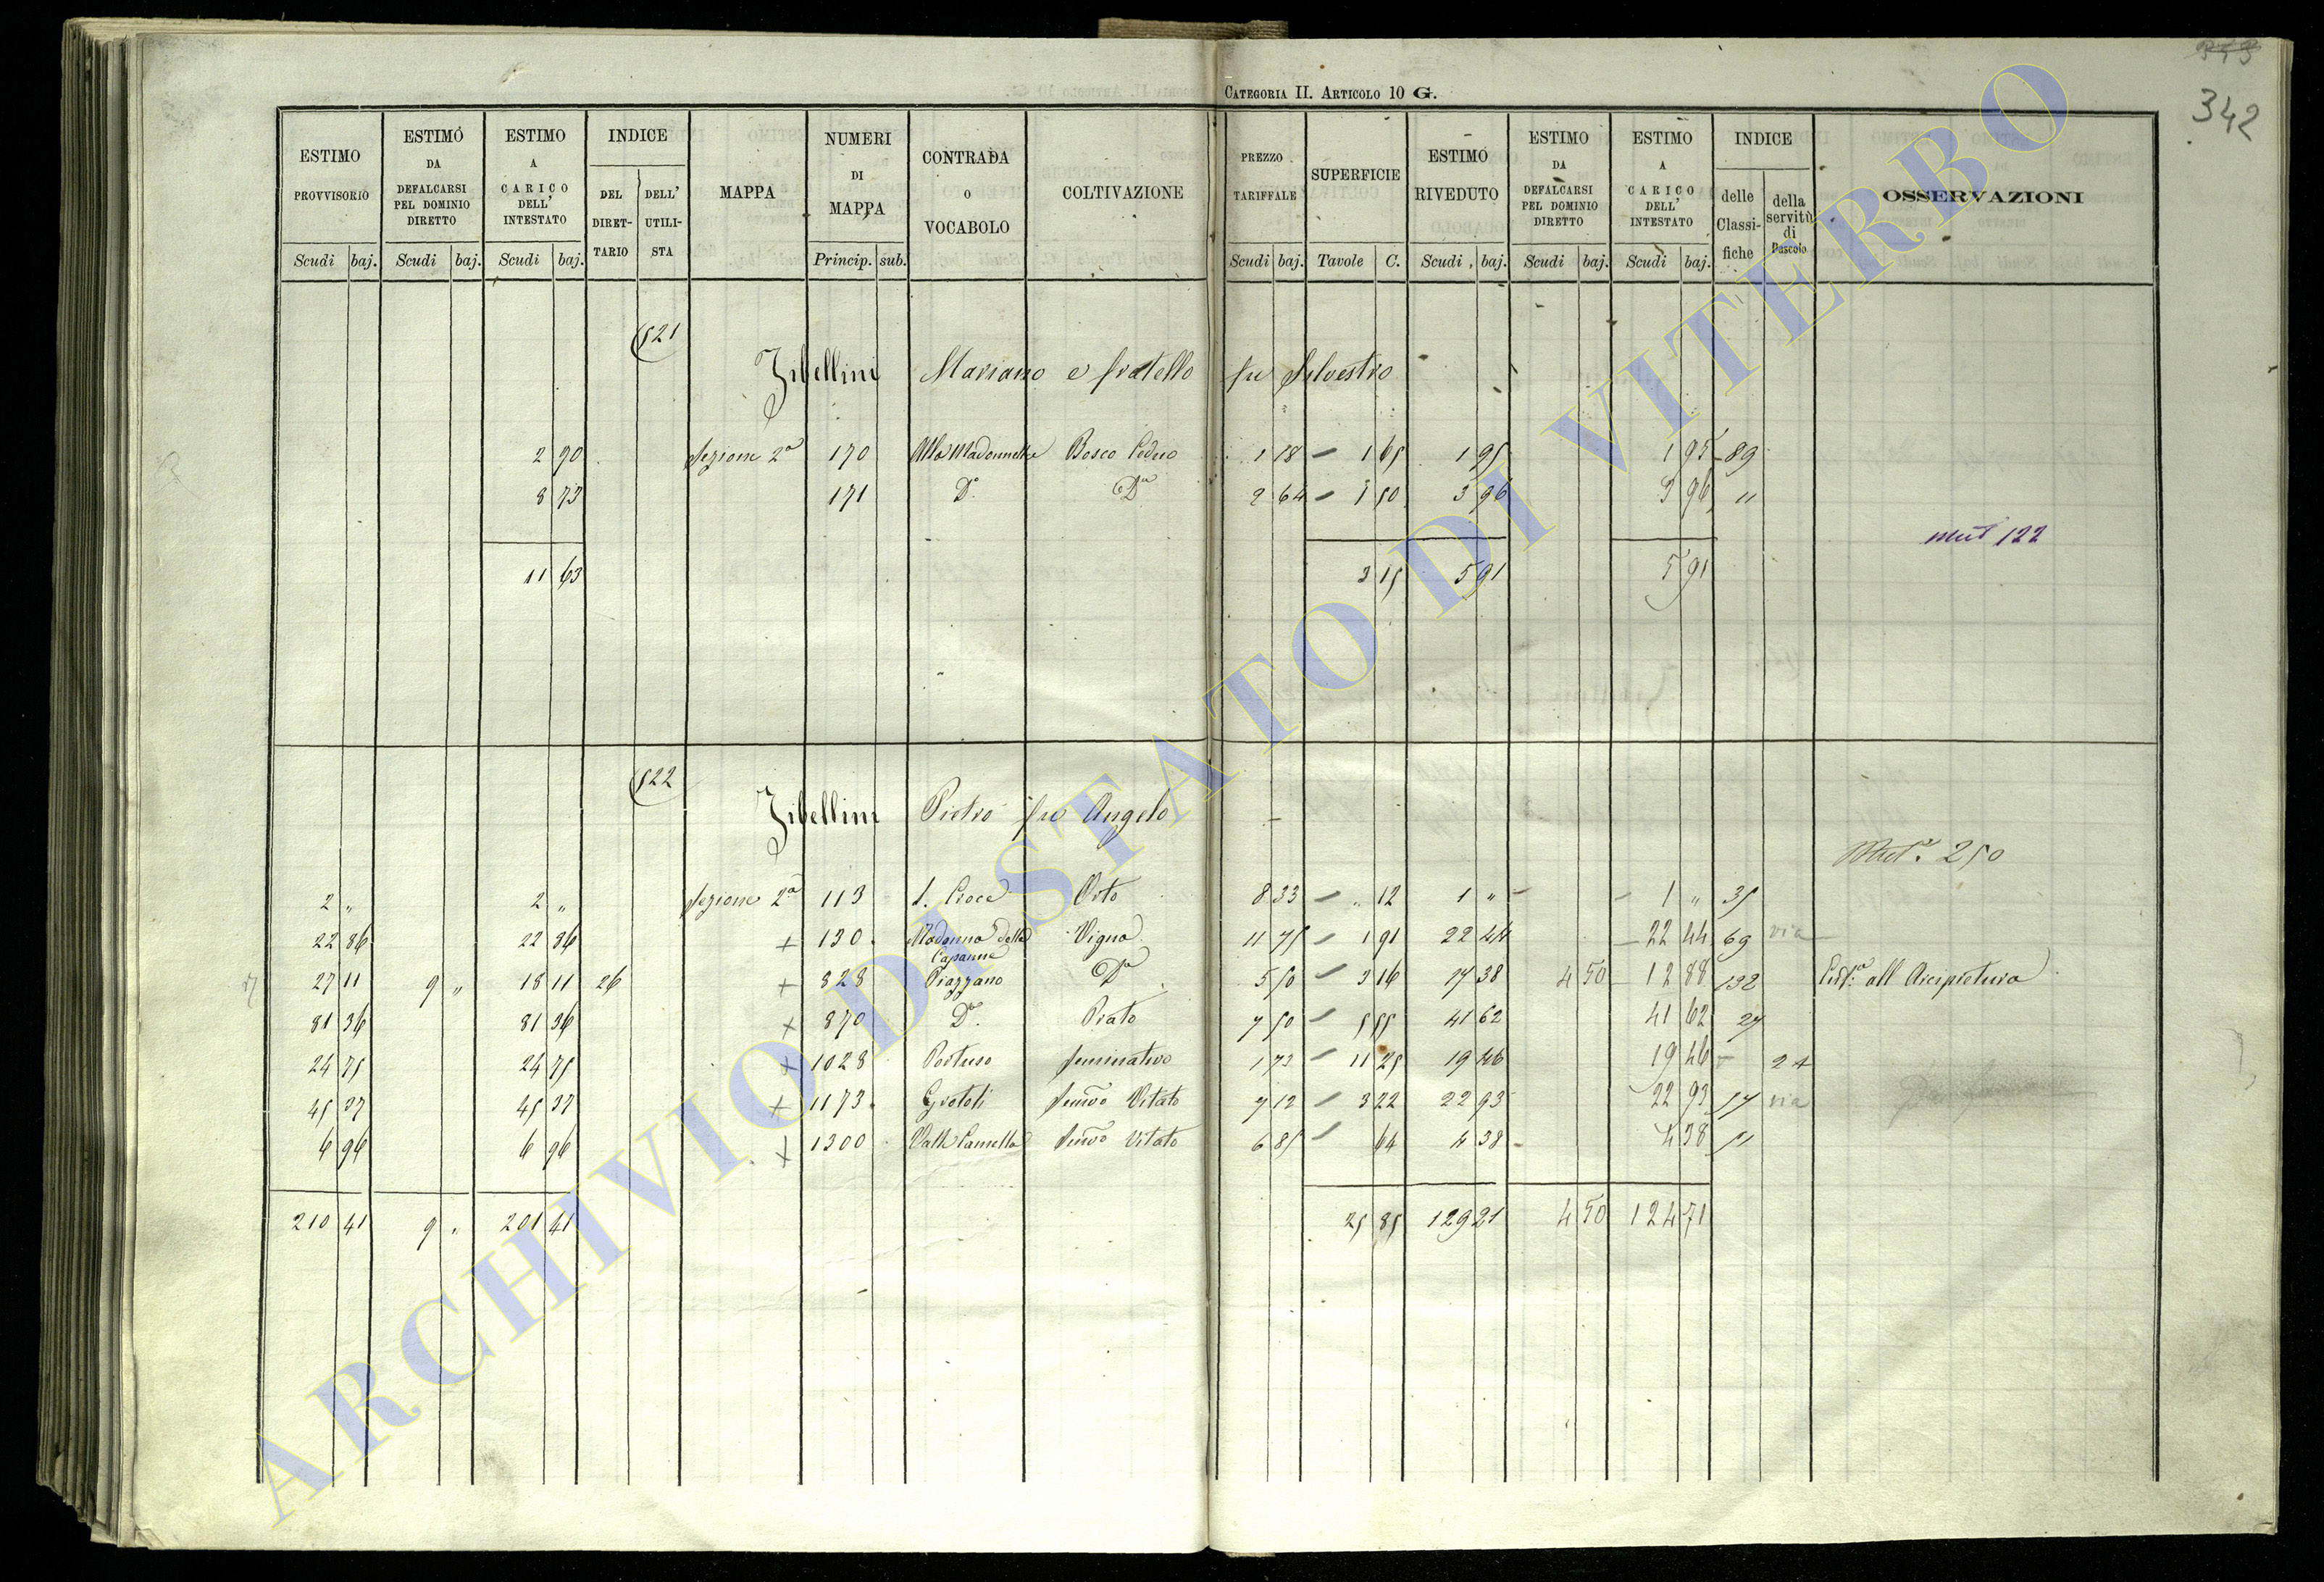 343
342
CATEGORIA II. ARTICOLO 10 G.
ESTIMO PROVVISORIO
ESTIMO DA DEFALCARSI PEL DOMINIO DIRETTO
ESTIMO A CARICO DELL' INTESTATO
INDICE
DEL DIRETTARIO
DELL' UTILISTA
MAPPA
NUMERI DI MAPPA
CONTRADA O VOCABOLO
COLTIVAZIONE
PREZZO TARIFFALE
SUPERFICIE
ESTIMO RIVEDUTO
ESTIMO DA DEFALCARSI PEL DOMINIO DIRETTO
ESTIMO A CARICO DELL' INTESTATO
INDICE
delle Classifiche
della servitù di Pascolo
OSSERVAZIONI
Scudi baj. Scudi baj. Scudi baj. Princip. sub. Scudi baj. Tavole C. Scudi baj. Scudi baj. Scudi baj.
521
Zibellini Mariano e fratello fu Silvestro
2 90 Sezione 2a 170 Alla Madonnella Bosco Ceduo 1 18 1 65 1 95 1 95 89
8 73 171 Do Do 2 64 1 50 3 96 3 96 11
mut 122
11 63 3 15 5 91 5 91
522
Zibellini Pietro fu Angelo
Mut. 250
2 " 2 " Sezione 2a 113 S. Croce Orto 8 33 " 12 1 " 1 " 35
22 86 22 86 + 130 Madonna della Capanne Vigna 11 75 1 91 22 44 22 44 69 via
27 11 9 " 18 11 26 + 828 Piazzano Do 5 50 3 16 17 38 4 50 12 88 132 all Arcipretura
81 36 81 36 + 870 Do Prato 7 50 5 55 41 62 41 62 27
24 75 24 75 + 1028 Pertuso Seminativo 1 73 11 25 19 46 19 46 24
45 37 45 37 + 1173 Grotoli Semvo Vitato 7 12 3 22 22 93 22 93 17 via
6 96 6 96 + 1300 Semvo Vitato 6 85 64 4 38 4 38 11
210 41 9 " 201 41 25 85 129 21 4 50 124 71
ARCHIVIO DI STATO DI VITERBO